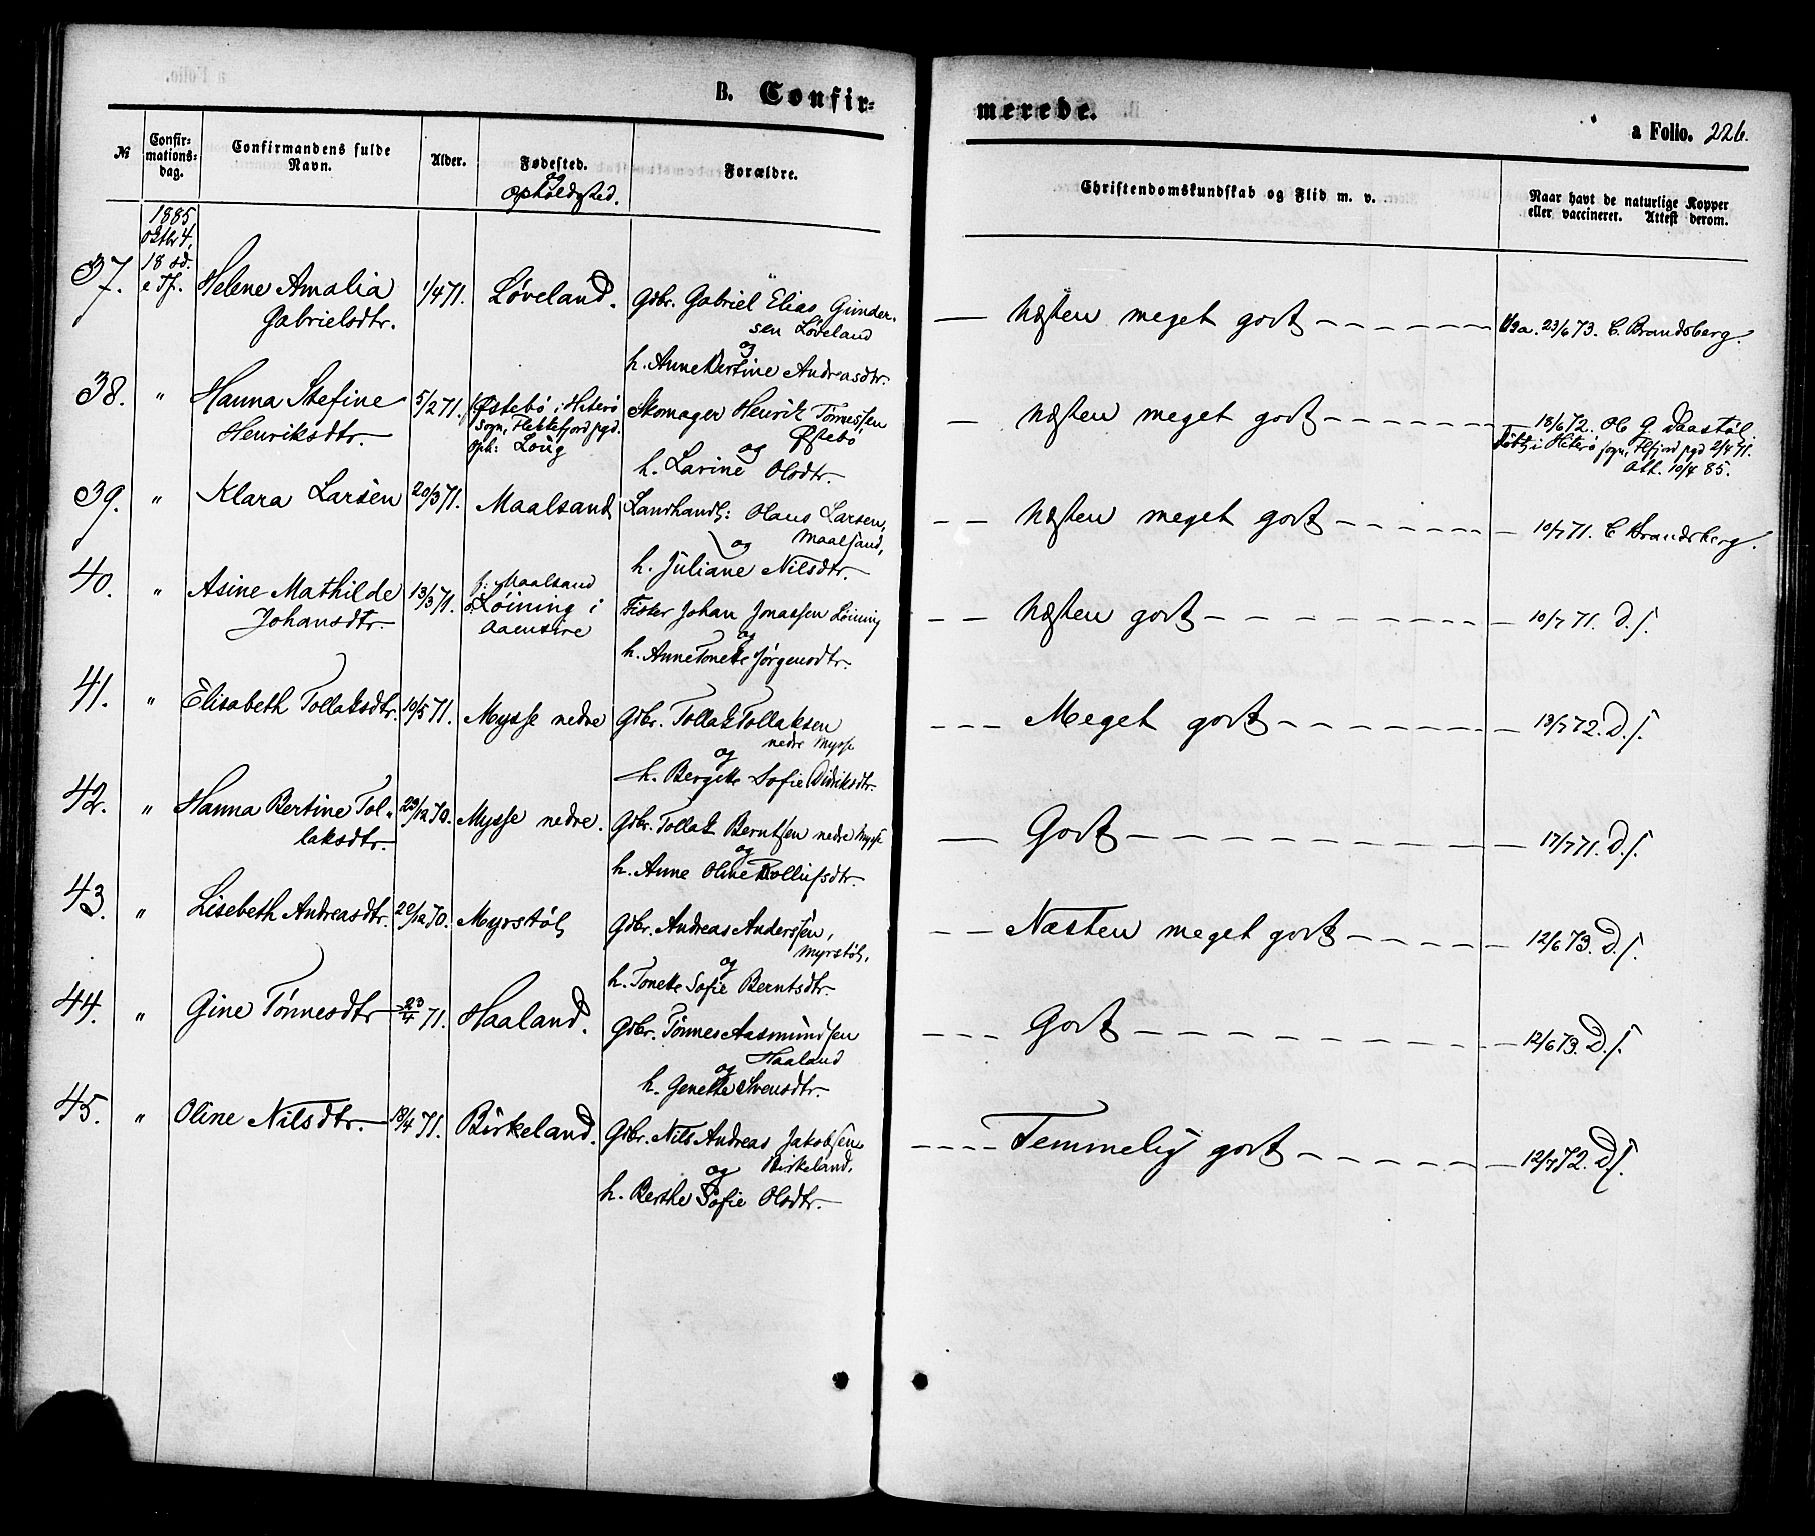 B. Confir-
merede.
a Folio. 226.
№
Confir-
mations-
dag.
Confirmandens fulde
Navn.
Alder.
Fødested.
og
opholdssted.
Forældre.
Christendomskundskab og Flid m. v.
Naar havt de naturlige Kopper
eller vaccineret. Attest derom.
1885
oktbr 4,
18 sd.
e Tf.
37. Helene Amalia 1/4 71. Løveland. Gdbr. Gabriel Elias Gunder-
Gabrielsdtr. sen Løveland
og
h. Anne Bertine Andreasdtr.
Næsten meget godt 23/6 73. C. Brandsberg.
38. " Hanna Stefine 5/2 71. Østebø i Hiterø Skomager Henrik Tønnessen
Henriksdtr. sogn, Flekkefjord pgd. Østebø
oph: Loug og
h. Larine Olsdtr.
Næsten meget godt 18/6 72. G. Vaastøl
født i Hiterø sogn, Flfjord pgd 2/4 71.
Att. 10/4 85.
39. " Klara Larsen 20/3 71. Maalsand Landhandl: Hans Larsen,
Maalsand,
og
h. Juliane Nilsdtr.
Næsten meget godt 10/7 71. C Brandsberg.
40. " Asine Mathilde 13/3 71. f: Maalsand
Johansdtr. o: Løining i Fisker Johan Jonassen Løining
Aaensire og
h. Anne Tonette Jørgensdtr.
Næsten godt 10/7 71. D. s.
41. " Elisabeth Tollaksdtr. 10/5 71. Mysse nedre Gdbr. Tollak Tollaksen
nedre Mysse
og
h. Bergitte Sofie Didriksdtr.
Meget godt 13/7 72. D. s.
42. " Hanna Bertine Tol- 29/12 70. Mysse nedre. Gdbr. Tollak Berntsen nedre Mysse
laksdtr. og
h. Anne Oline Rollufsdtr.
Godt 17/7 71. D. s.
43. " Lisebeth Andreasdtr. 20/12 70. Myrstøl Gdbr. Andreas Anderssen,
Myrstøl,
og
h. Tonette Sofie Berntsdtr.
Næsten meget godt 12/6 73. D. s.
44. " Gine Tønnesdtr 23/4 71. Haaland. Gdbr. Tønnes Aasmundsen
Haaland
og
h. Genette Svensdtr.
Godt 12/6 73. D. s.
45. " Oline Nilsdtr. 18/4 71. Birkeland. Gdbr. Nils Andreas Jakobsen
Birkeland,
og
h. Berthe Sofie Olsdtr.
Temmelig godt 12/7 72. D. s.